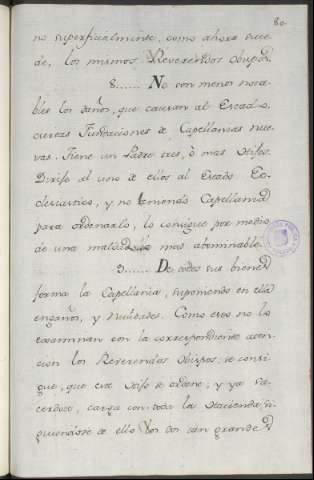 80.
no superficialmente, como ahora suce-
de, los mismos Reverendos Obispos.
8...... No son menos nota-
bles los daños, que causan al Estado,
ciertas Fundaciones de Capellanias nue-
vas. Tiene un Padre tres, ò mas Hijos.
Dirije al uno de ellos al Estado Ec-
clesiastico, y no teniendo Capellania
para ordenarlo, lo consigue por medio
de una maldad mas abominable.
9...... De todos sus bienes
forma la Capellania, suponiendo en ella
engaños, y Nulidades. Como esto no lo
examinan con la correspondiente aten-
cion los Reverendos Obispos; se consi-
gue, que este Hijo se ordene; y ya Sa-
cerdote, carga con toda la Hacienda, si-
guiendose de ello dos tan grandes